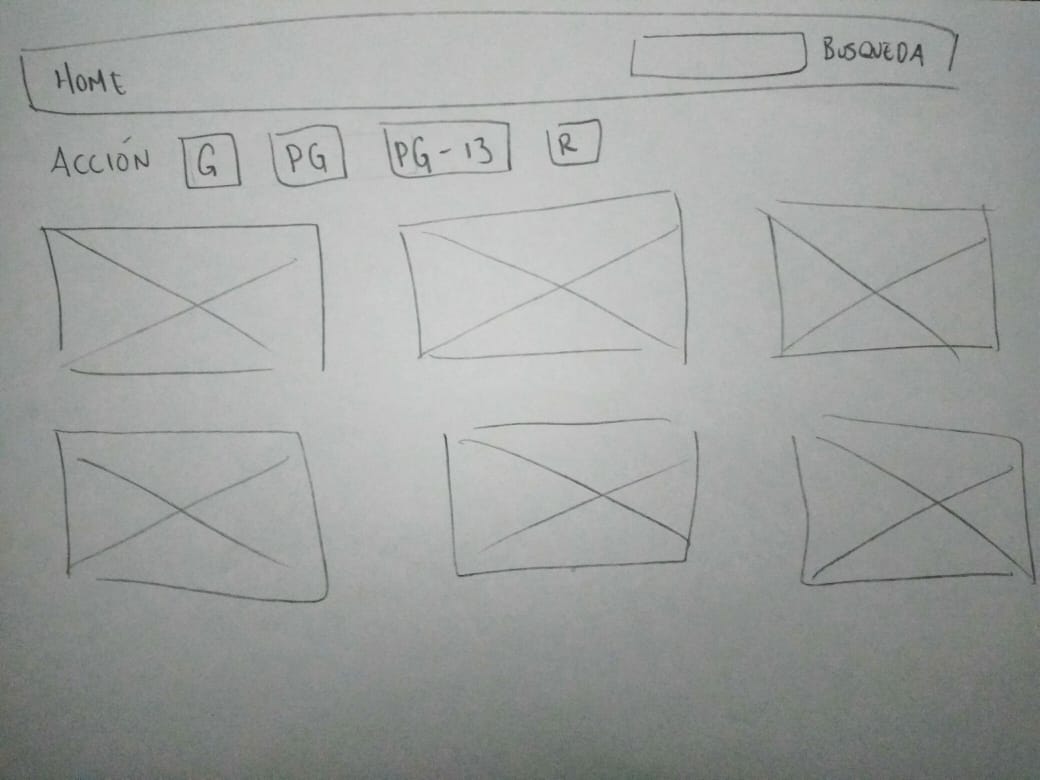 HOME BUSQUEDA
ACCIÓN G PG PG-13 R